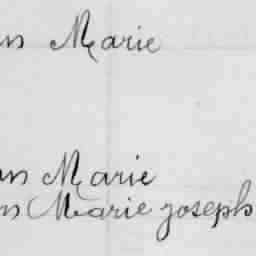 Marie
Marie
Marie joseph